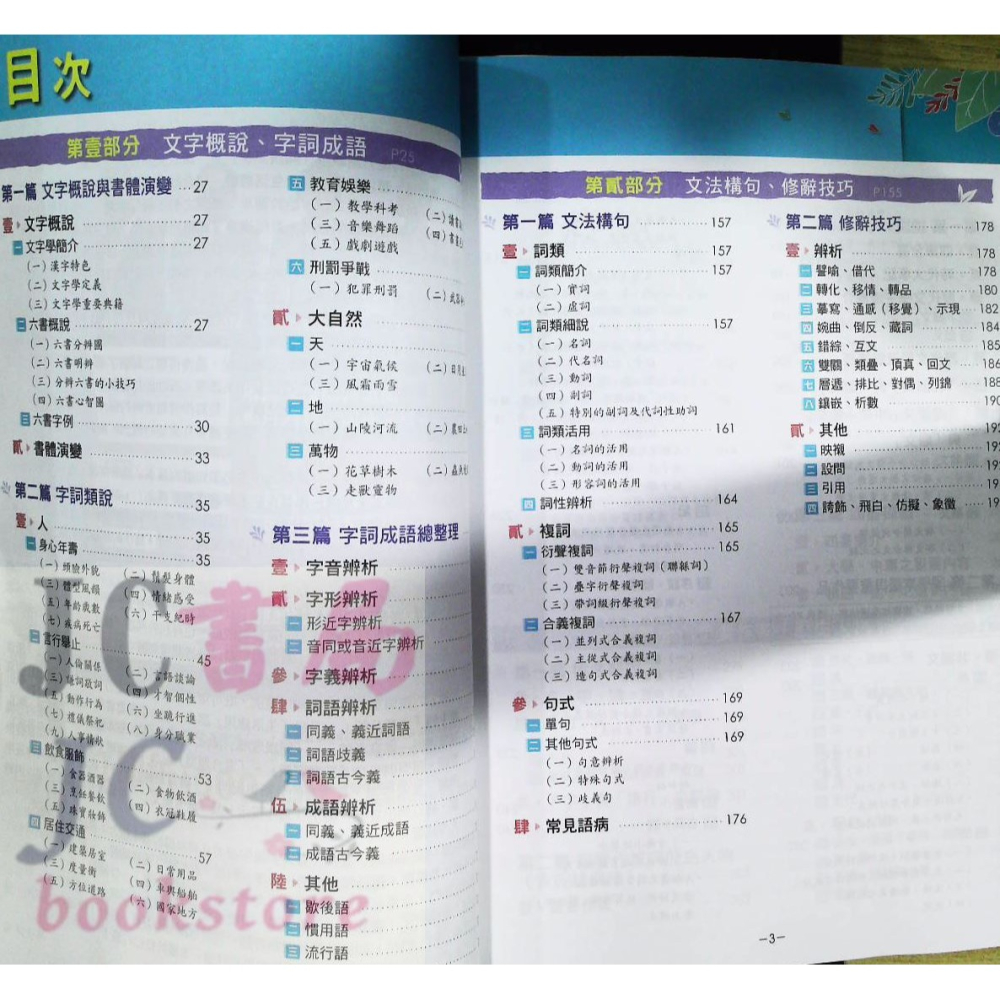 目次
第壹部分 文字概說、字詞成語 P25
第一篇 文字概說與書體演變 27
壹 文字概說 27
一 文字學簡介 27
(一) 漢字特色
(二) 文字學定義
(三) 文字學重要典籍
二 六書概說 27
(一) 六書分辨圖
(二) 六書明辨
(三) 分辨六書的小技巧
(四) 六書心智圖
三 六書字例 30
貳 書體演變 33
第二篇 字詞類說 35
壹 人 35
一 身心年壽 35
(一) 頭臉外貌 (二) 鬚髮身體
(三) 體型風韻 (四) 情緒感受
(五) 年齡歲數 (六) 干支紀時
(七) 疾病死亡
二 言行舉止 45
(一) 人倫關係 (二) 言語談論
(三) 謙詞敬詞 (四) 才智個性
(五) 動作行為 (六) 坐跪行進
(七) 禮儀祭祀 (八) 身分職業
(九) 人事情狀
三 飲食服飾 53
(一) 食器酒器 (二) 食物飲酒
(三) 烹飪餐飲 (四) 衣冠鞋履
(五) 珠寶妝飾
四 居住交通 57
(一) 建築居室 (二) 日常用品
(三) 度量衡 (四) 車輿船舶
(五) 方位道路 (六) 國家地方
五 教育娛樂
(一) 教學科考 (二)
(三) 音樂舞蹈 (四) 書畫
(五) 戲劇遊戲
六 刑罰爭戰
(一) 犯罪刑罰 (二) 武器
貳 大自然
一 天
(一) 宇宙氣候 (二) 日月
(三) 風霜雨雪
二 地
(一) 山陵河流 (二) 農田
三 萬物
(一) 花草樹木 (二) 蟲魚
(三) 走獸寵物
第三篇 字詞成語總整理
壹 字音辨析
貳 字形辨析
一 形近字辨析
二 音同或音近字辨析
參 字義辨析
肆 詞語辨析
一 同義、義近詞語
二 詞語歧義
三 詞語古今義
伍 成語辨析
一 同義、義近成語
二 成語古今義
陸 其他
一 歇後語
二 慣用語
三 流行語
第貳部分 文法構句、修辭技巧 P155
第一篇 文法構句 157
壹 詞類 157
一 詞類簡介 157
(一) 實詞
(二) 虛詞
二 詞類細說 157
(一) 名詞
(二) 代名詞
(三) 動詞
(四) 副詞
(五) 特別的副詞及代詞性助詞
三 詞類活用 161
(一) 名詞的活用
(二) 動詞的活用
(三) 形容詞的活用
四 詞性辨析 164
貳 複詞 165
一 衍聲複詞 165
(一) 雙音節衍聲複詞(聯緜詞)
(二) 疊字衍聲複詞
(三) 帶詞綴衍聲複詞
二 合義複詞 167
(一) 並列式合義複詞
(二) 主從式合義複詞
(三) 造句式合義複詞
參 句式 169
一 單句 169
二 其他句式 169
(一) 句意辨析
(二) 特殊句式
(三) 歧義句
肆 常見語病 176
第二篇 修辭技巧 178
壹 辨析 178
一 譬喻、借代 178
二 轉化、移情、轉品 180
三 摹寫、通感(移覺)、示現 182
四 婉曲、倒反、藏詞 184
五 錯綜、互文 185
六 雙關、類疊、頂真、回文 186
七 層遞、排比、對偶、列錦 188
八 鑲嵌、析數 190
貳 其他 192
一 映襯
二 設問
三 引用
四 誇飾、飛白、仿擬、象徵
-3-
JC書局
JC
bookstore